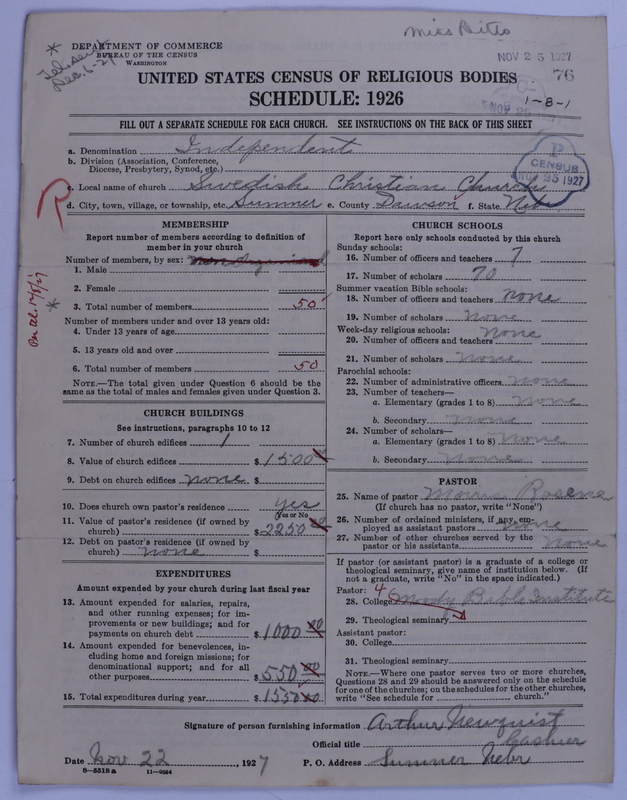 Miss Bitts
* DEPARTMENT OF COMMERCE
BUREAU OF THE CENSUS
WASHINGTON
Tel. sent
Dec. 6-27
NOV 25 1927
76
1-8-1
UNITED STATES CENSUS OF RELIGIOUS BODIES
SCHEDULE: 1926
FILL OUT A SEPARATE SCHEDULE FOR EACH CHURCH. SEE INSTRUCTIONS ON THE BACK OF THIS SHEET
a. Denomination Independent
b. Division (Association, Conference, Diocese, Presbytery, Synod, etc.)
P CENSUS NOV 25 1927
c. Local name of church Swedish Christian Church
d. City, town, village, or township, etc. Sumner e. County Dawson f. State Nebr
MEMBERSHIP
Report number of members according to definition of member in your church
Number of members, by sex:
1. Male
2. Female
3. Total number of members 50
Number of members under and over 13 years old:
4. Under 13 years of age
5. 13 years old and over
6. Total number of members 50
NOTE.—The total given under Question 6 should be the same as the total of males and females given under Question 3.
CHURCH BUILDINGS
See instructions, paragraphs 10 to 12
7. Number of church edifices 1
8. Value of church edifices $ 1500 00
9. Debt on church edifices none $
10. Does church own pastor's residence yes
(Yes or No)
11. Value of pastor's residence (if owned by church) $ 2250 00
12. Debt on pastor's residence (if owned by church) none $
EXPENDITURES
Amount expended by your church during last fiscal year
13. Amount expended for salaries, repairs, and other running expenses; for improvements or new buildings; and for payments on church debt $ 1000 00
14. Amount expended for benevolences, including home and foreign missions; for denominational support; and for all other purposes $ 550 00
15. Total expenditures during year $ 1550 00
CHURCH SCHOOLS
Report here only schools conducted by this church
Sunday schools:
16. Number of officers and teachers 7
17. Number of scholars 70
Summer vacation Bible schools:
18. Number of officers and teachers none
19. Number of scholars None
Week-day religious schools:
20. Number of officers and teachers None
21. Number of scholars None
Parochial schools:
22. Number of administrative officers None
23. Number of teachers—
a. Elementary (grades 1 to 8) None
b. Secondary None
24. Number of scholars—
a. Elementary (grades 1 to 8) None
b. Secondary None
PASTOR
25. Name of pastor Morris Rosene
(If church has no pastor, write "None")
26. Number of ordained ministers, if any, employed as assistant pastors None
27. Number of other churches served by the pastor or his assistants None
If pastor (or assistant pastor) is a graduate of a college or theological seminary, give name of institution below. (If not a graduate, write "No" in the space indicated.)
Pastor: 4
28. College Moody Bible Institute
29. Theological seminary
Assistant pastor:
30. College
31. Theological seminary
NOTE.—Where one pastor serves two or more churches, Questions 28 and 29 should be answered only on the schedule for one of the churches; on the schedules for the other churches, write "See schedule for church."
Signature of person furnishing information Arthur Newquist
Official title Cashier
Date Nov 22, 1927 P. O. Address Sumner Nebr
6—5518a 11—9034